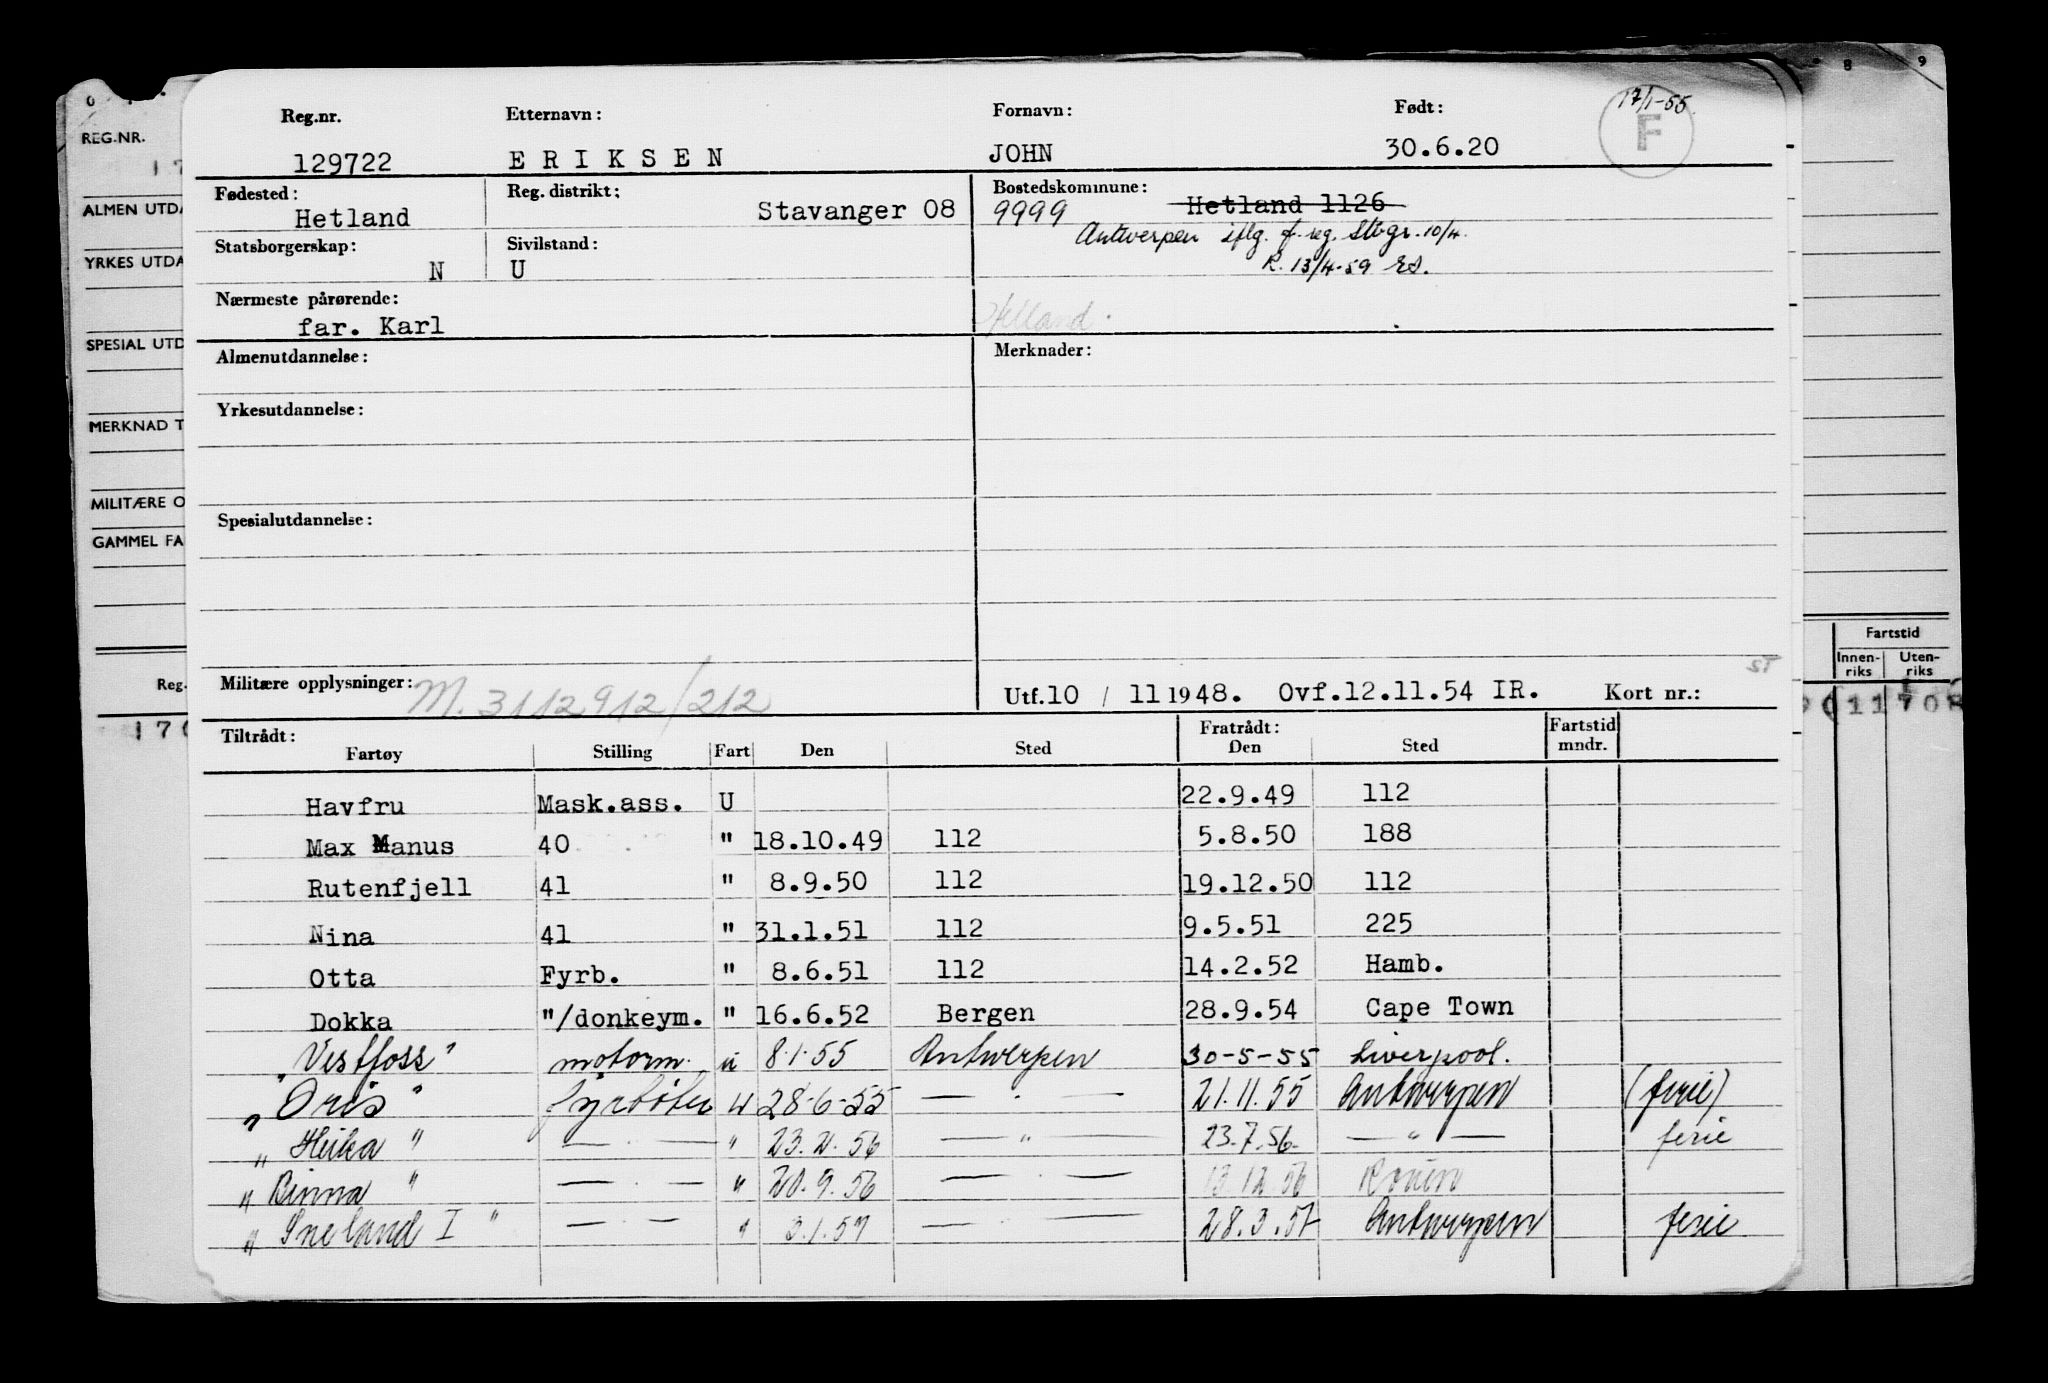 17/1-55
F
Reg.nr. Etternavn: Fornavn: Født:
129722 E R I K S E N JOHN 30.6.20
Fødested: Reg. distrikt: Bostedskommune:
Hetland Stavanger 08 9999 Hetland 1126
Antwerpen iflg. f. reg. Stvgr. 10/4.
Statsborgerskap: Sivilstand:
N U R. 13/4-59 ES.
Nærmeste pårørende:
far. Karl Hetland.
Almenutdannelse: Merknader:
Yrkesutdannelse:
Spesialutdannelse:
ST
Militære opplysninger: M. 3112912/212 Utf.10 / 11 1948. Ovf.12.11.54 IR. Kort nr.:
Tiltrådt: Fratrådt: Fartstid
Fartøy Stilling Fart Den Sted Den Sted mndr.
Havfru Mask.ass. U 22.9.49 112
Max Manus 40 " 18.10.49 112 5.8.50 188
Rutenfjell 41 " 8.9.50 112 19.12.50 112
Nina 41 " 31.1.51 112 9.5.51 225
Otta Fyrb. " 8.6.51 112 14.2.52 Hamb.
Dokka "/donkeym. " 16.6.52 Bergen 28.9.54 Cape Town
"Vestfoss" motorm. u 8.1.55 Antwerpen 30-5-55 Liverpool.
"Oris" fyrbøter u 28-6-55 — . — 21.11.55 Antwerpen (ferie)
"Heika" — . — " 23.2.56 — " — 23.7.56. — " — ferie
"Binna" — . — " 20.9.56 — . — 13.12.56 Rouen
"Sneland I" — . — " 3.1.57 — . — 28.3.57 Antwerpen ferie
REG.NR.
ALMEN UTDA
YRKES UTDA
SPESIAL UTD
MERKNAD T
MILITÆRE O
GAMMEL FA
Reg.
Fartstid
Innen-riks Uten-riks